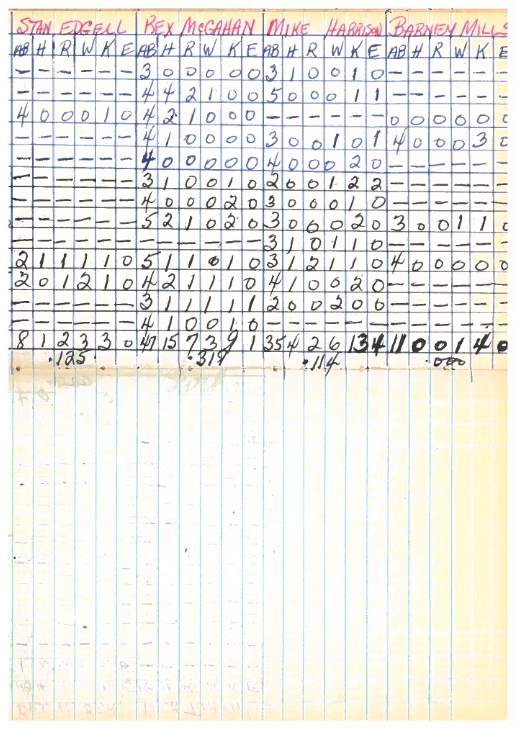 STAN EDGELL REX McGAHAN MIKE HARRISON BARNEY MILLS
AB H R W K E AB H R W K E AB H R W K E AB H R W K E
- - - - - - 3 0 0 0 0 0 3 1 0 0 1 0 - - - - -
- - - - - - 4 4 2 1 0 0 5 0 0 0 1 1 - - - - -
4 0 0 0 1 0 4 2 1 0 0 0 - - - - - - 0 0 0 0 0 0
- - - - - - 4 1 0 0 0 0 3 0 0 1 0 1 4 0 0 0 3 0
- - - - - - 4 0 0 0 0 0 4 0 0 0 2 0
- - - - - - 3 1 0 0 1 0 2 0 0 1 2 2 - - - - -
- - - - - - 4 0 0 0 2 0 3 0 0 0 1 0 - - - - -
- - - - - - 5 2 1 0 2 0 3 0 0 0 2 0 3 0 0 1 1 0
- - - - - - - - - - - - 3 1 0 1 1 0 - - - - -
2 1 1 1 1 0 5 1 1 0 1 0 3 1 2 1 1 0 4 0 0 0 0 0
2 0 1 2 1 0 4 2 1 1 1 0 4 1 0 0 2 0 - - - - -
- - - - - - 3 1 1 1 1 1 2 0 0 2 0 0 - - - - -
- - - - - - 4 1 0 0 1 0 - - - - - - - - - - -
8 1 2 3 3 0 47 15 7 3 9 1 35 4 2 6 13 4 11 0 0 1 4 0
.125 .319 .114 .000